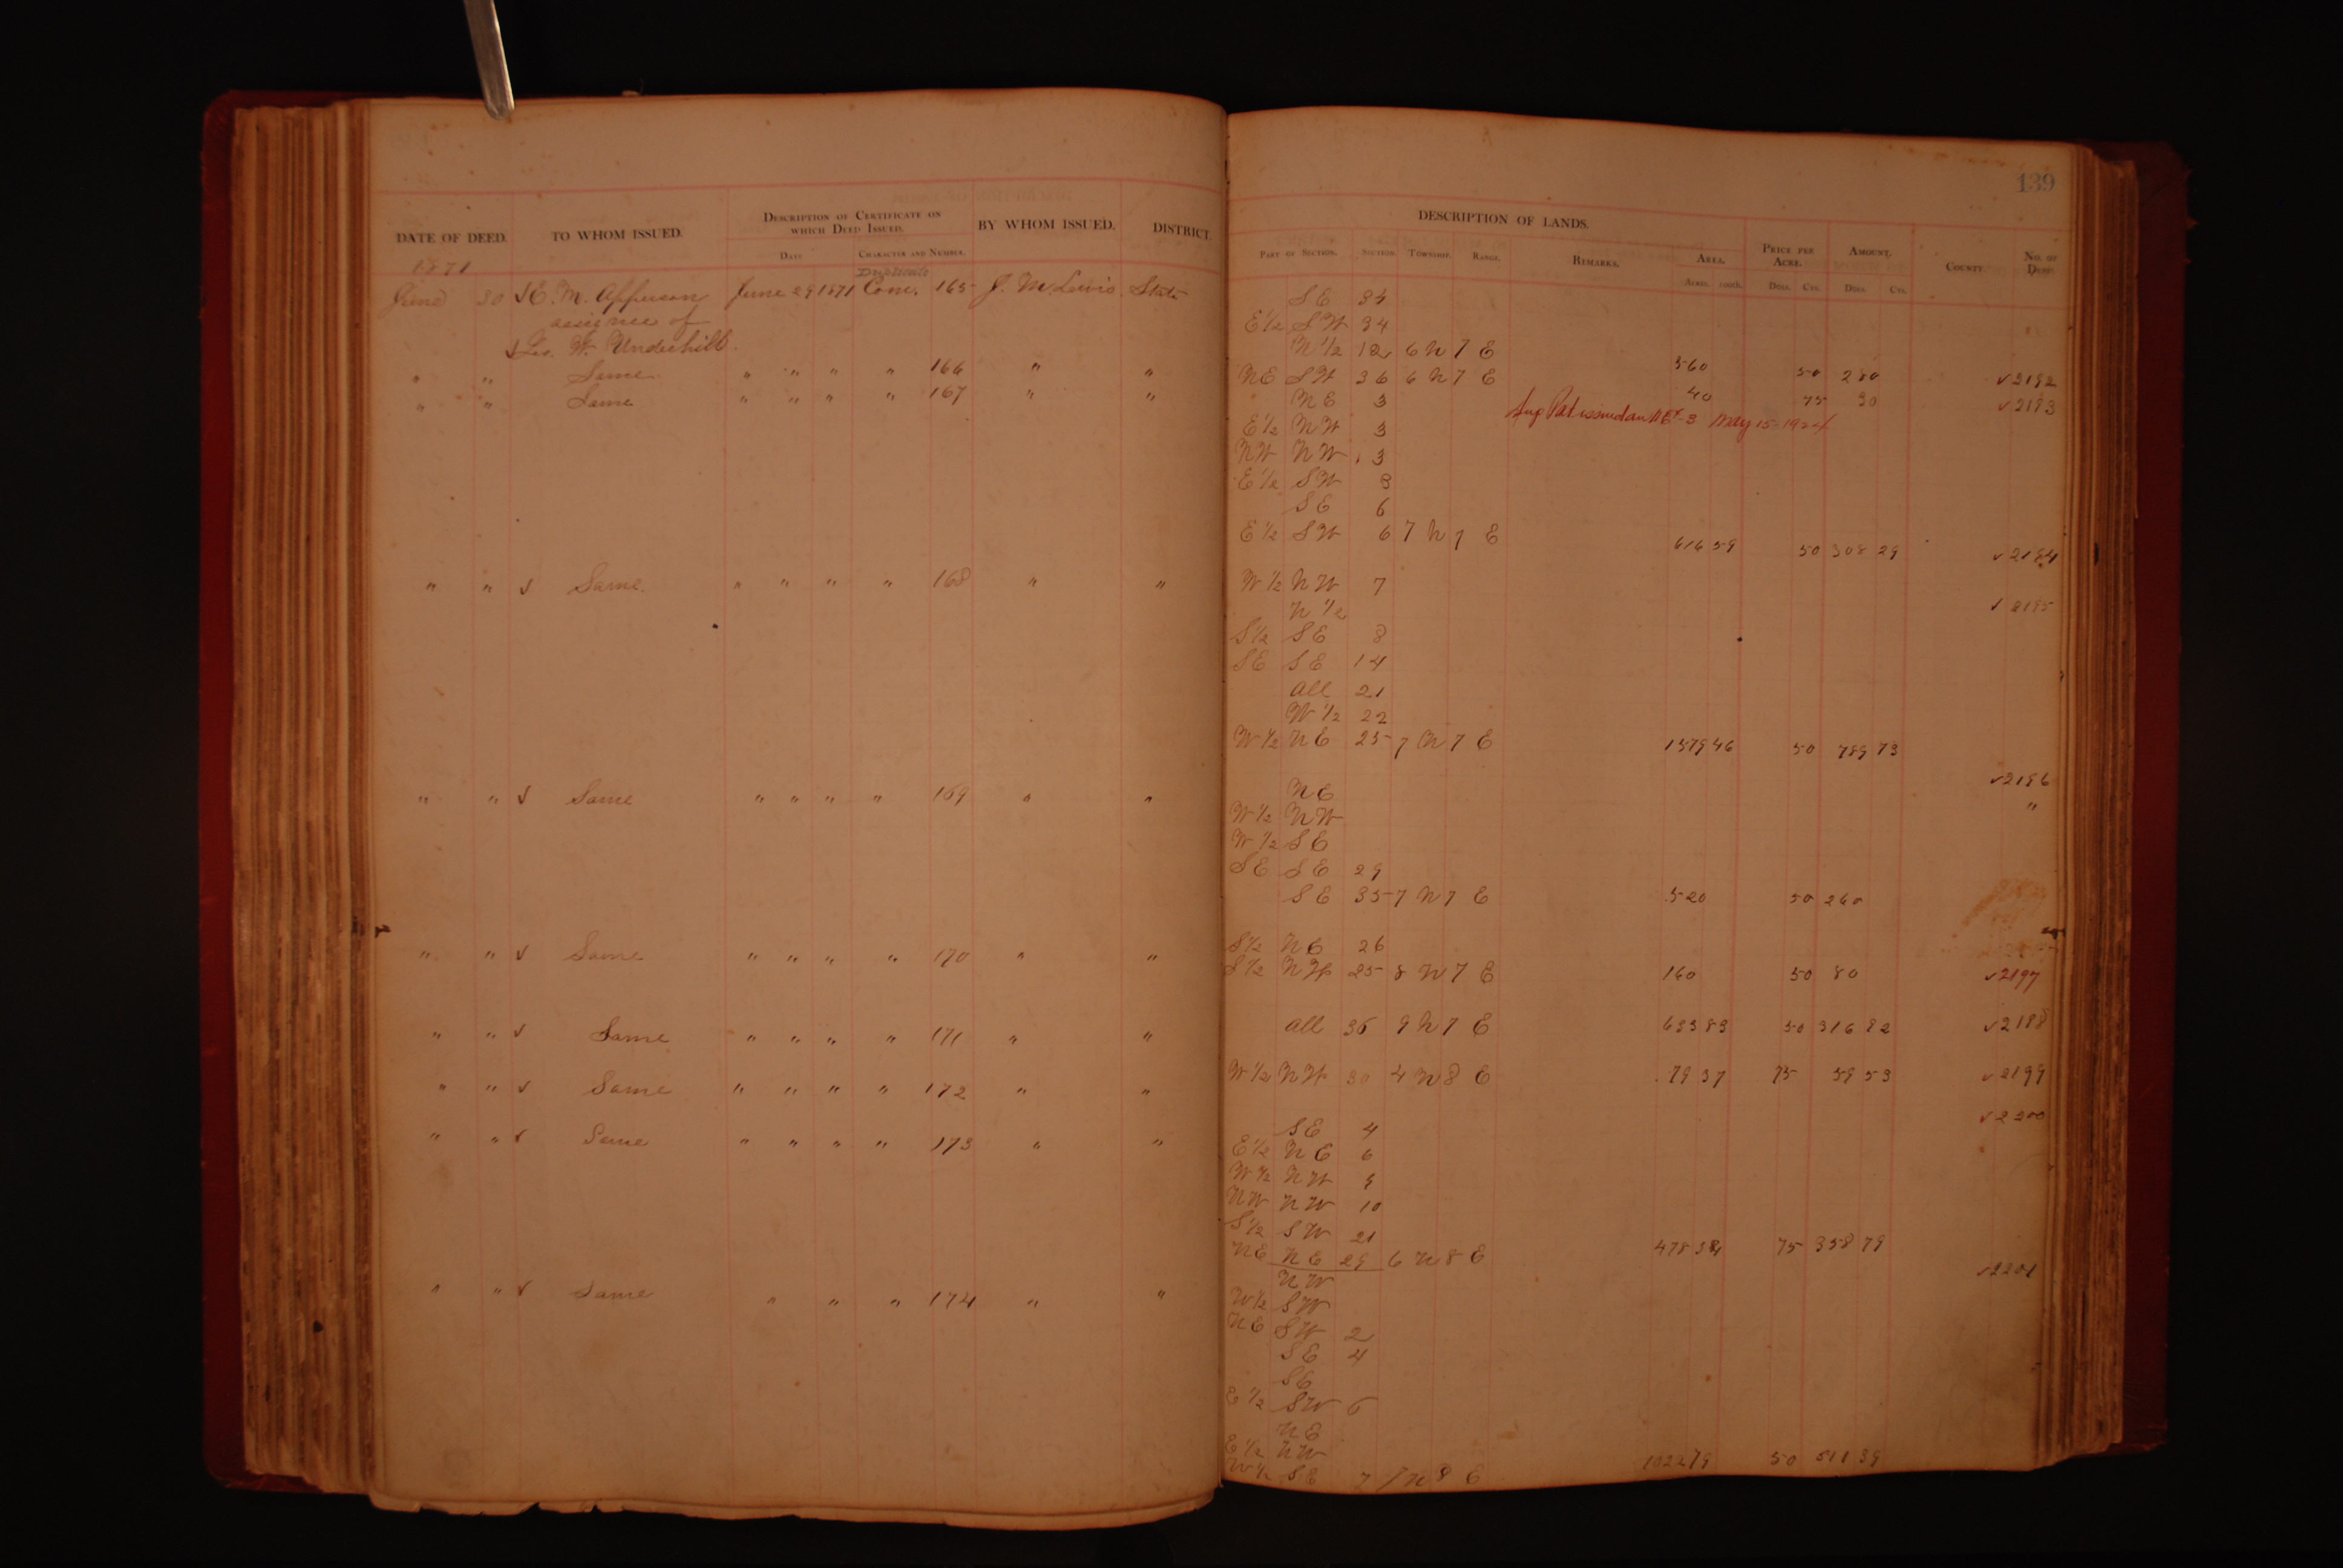 139
DATE OF DEED. TO WHOM ISSUED. DESCRIPTION OF CERTIFICATE ON WHICH DEED ISSUED. BY WHOM ISSUED. DISTRICT. DESCRIPTION OF LANDS. PRICE PER ACRE. AMOUNT. COUNTY. NO. OF DEED.
DATE CHARACTER AND NUMBER. PART OF SECTION. SECTION. TOWNSHIP. RANGE. REMARKS. AREA. ACRES. 100ths. DOLS. CTS. DOLS. CTS.
1871
Duplicate
June 30 ✓ E. M. Apperson June 29 1871 Com. 165 J. M. Lewis State SE 34
assignee of E½ SW 34
✓ Geo. W. Underhill. N½ 12 6 N 7 E 560 50 280 ✓ 2192
" " Same " " " " 166 " " NE SW 36 6 N 7 E 40 75 30 ✓ 2193
" " Same " " " " 167 " " NE 3
May 15-1924
E½ NW 3
NW NW 3
E½ SW 3
SE 6
E½ SW 6 7 N 7 E 616 59 50 308 29 ✓ 2194
" " ✓ Same " " " " 168 " " W½ NW 7 ✓ 2195
N½
S½ SE 8
SE SE 14
All 21
W½ 22
W½ NE 25 7 N 7 E 1579 46 50 789 73
" " ✓ Same " " " " 169 " " NE ✓ 2196
W½ NW "
W½ SE
SE SE 29
SE 35 7 N 7 E 520 50 260
" " ✓ Same " " " " 170 " " S½ NE 26
S½ NW 25 8 N 7 E 160 50 80 ✓ 2197
" " ✓ Same " " " " 171 " " All 36 9 N 7 E 633 83 50 316 92 ✓ 2198
" " ✓ Same " " " " 172 " " W½ NW 30 4 N 8 E 79 37 75 59 53 ✓ 2199
" " ✓ Same " " " " 173 " " SE 4 ✓ 2200
E½ NE 6
W½ NW 9
NW NW 10
S½ SW 21
NE NE 29 6 N 8 E 478 38 75 358 79
" " ✓ Same " " " 174 " " NW ✓ 2201
W½ SW
NE SW 2
SE 4
SE
E½ SW 6
NE
E½ NW
W½ SE 7 7 N 8 E 1022 79 50 511 39